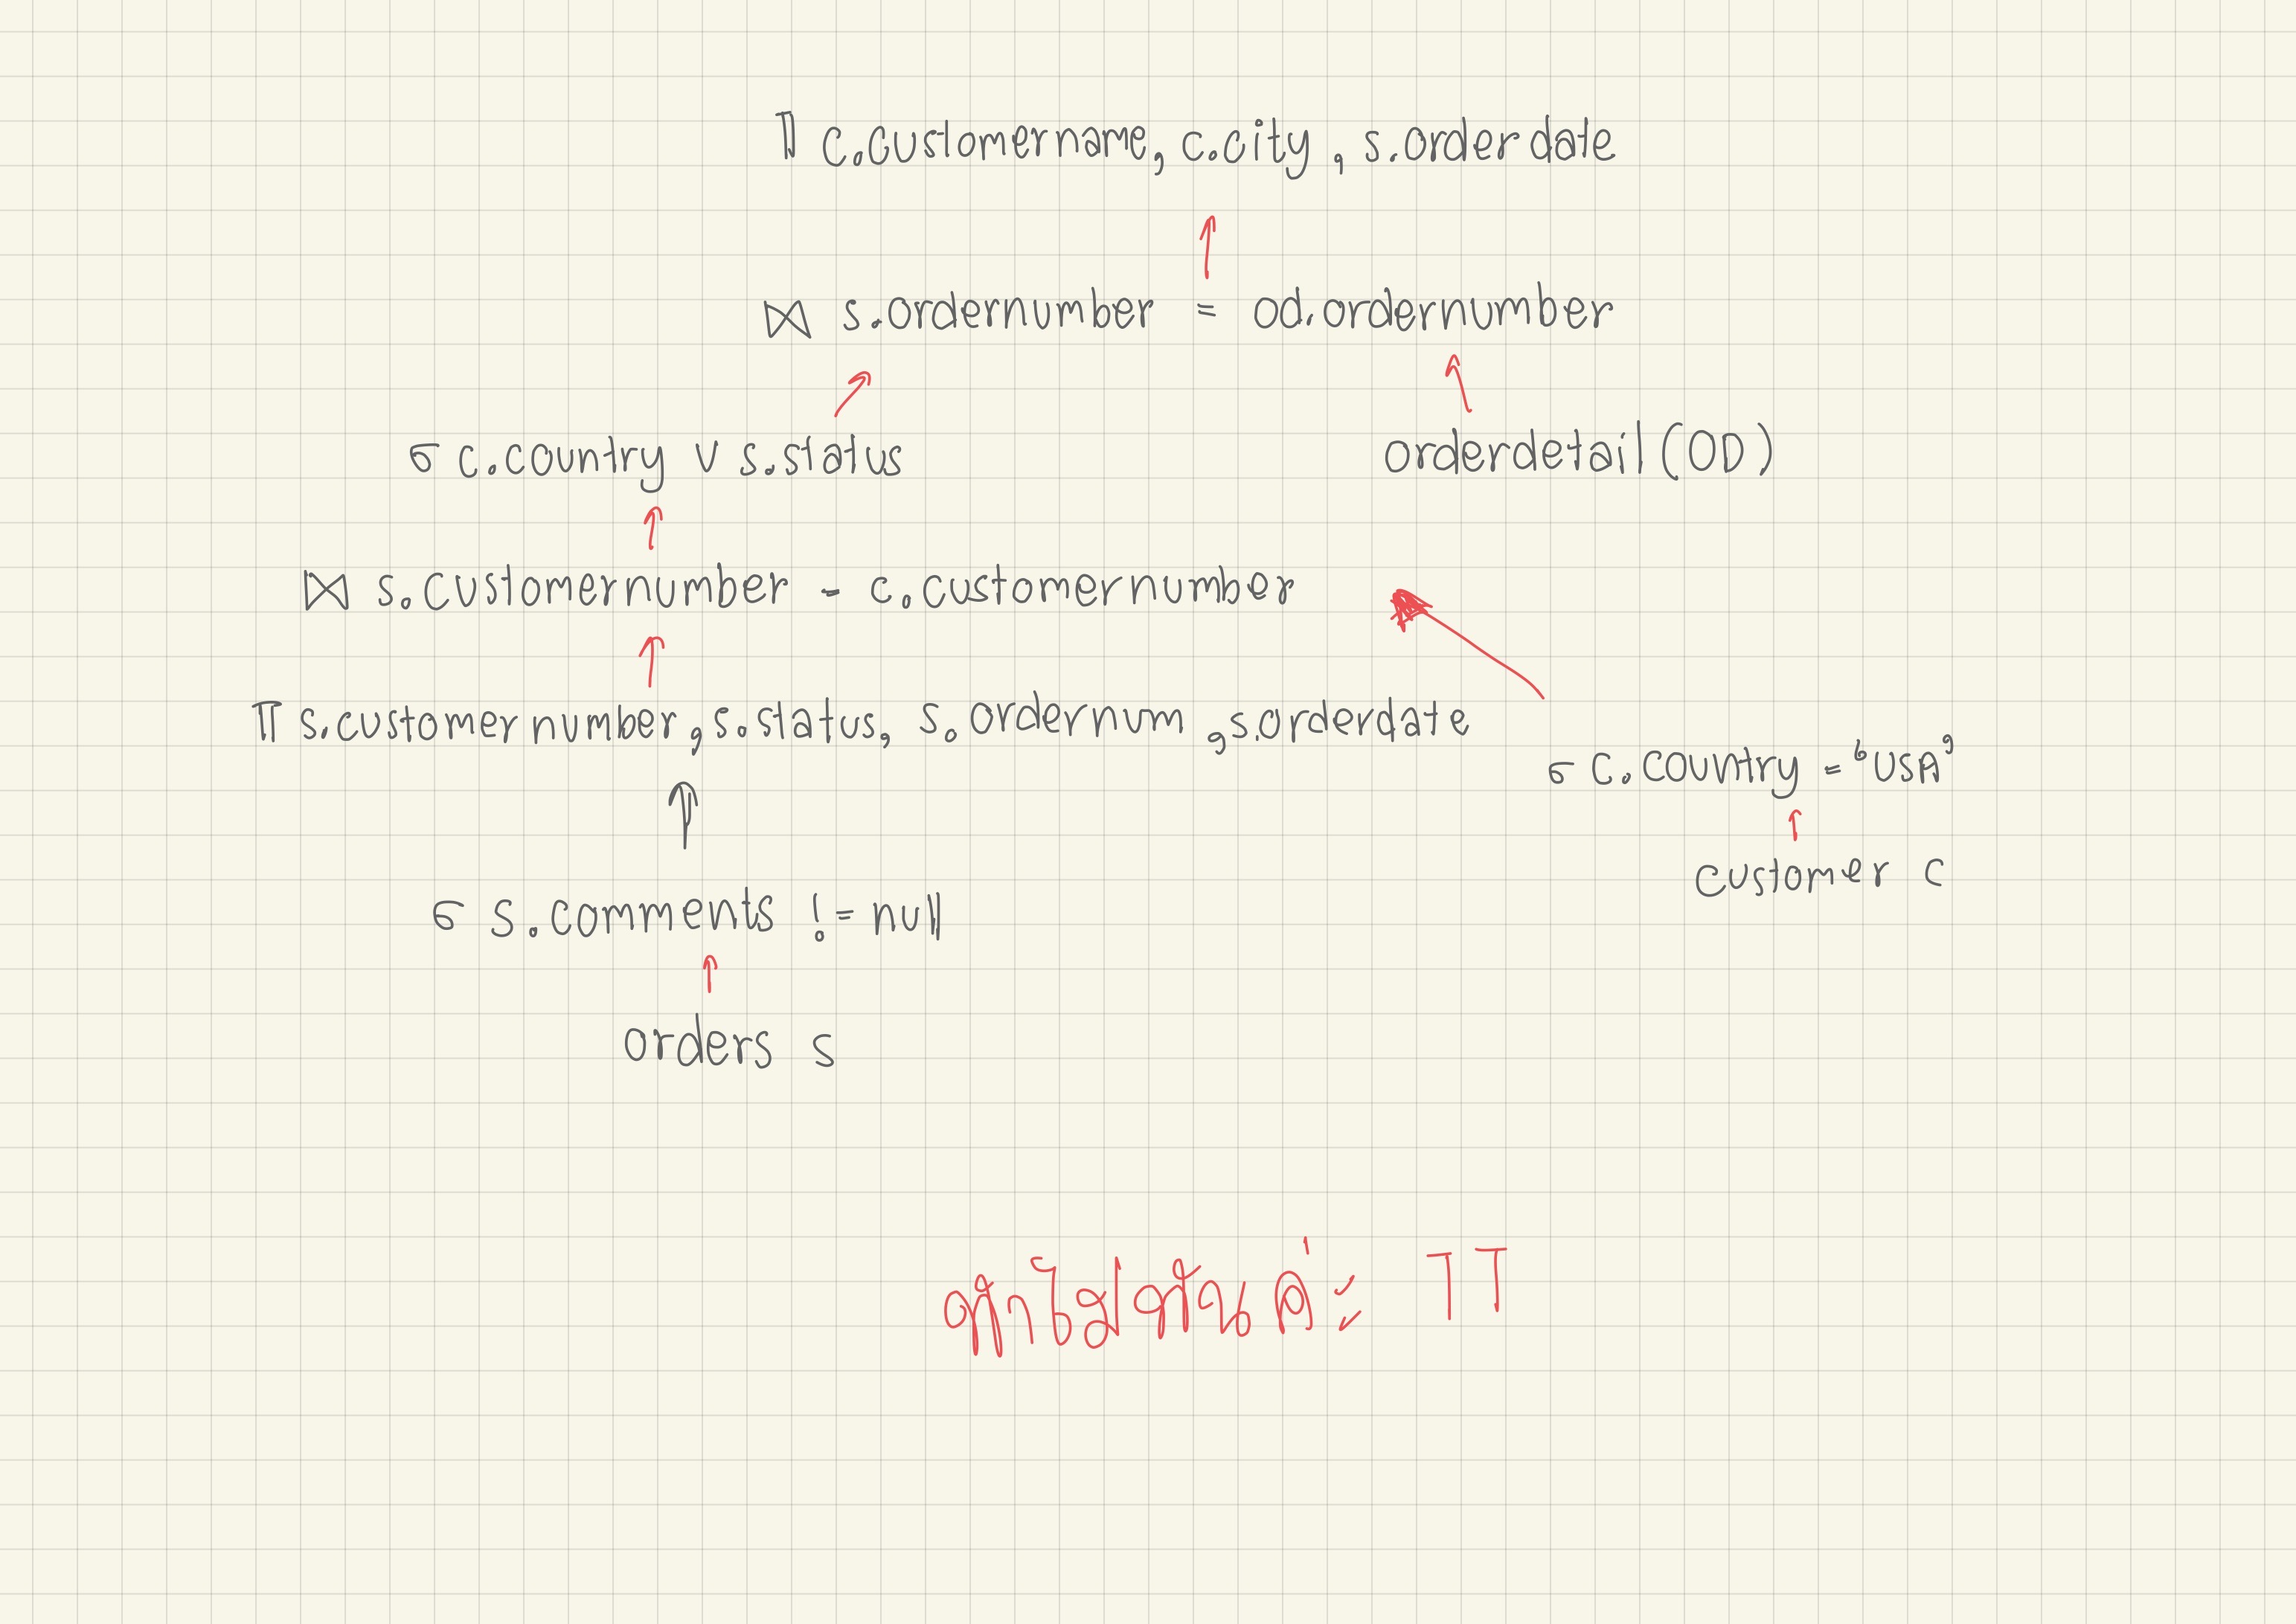 π c.customername, c.city, s.orderdate
⋈ s.ordernumber = od.ordernumber
σ c.country v s.status
orderdetail (OD)
⋈ s.customernumber = c.customernumber
π s.customernumber, s.status, s.ordernum, s.orderdate
σ c.country = 'USA'
customer c
σ s.comments != null
orders s
TT